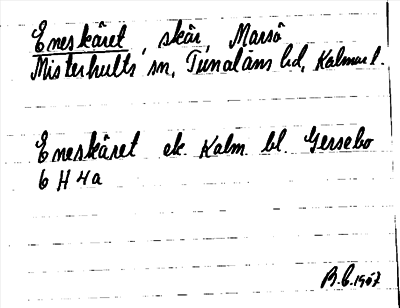 Eneskäret, skär, Marsö
Misterhults sn, Tunaläns hd, Kalmar l.
Eneskäret ek. Kalm. bl. Gersebo
6 H 4a
B.C. 1967